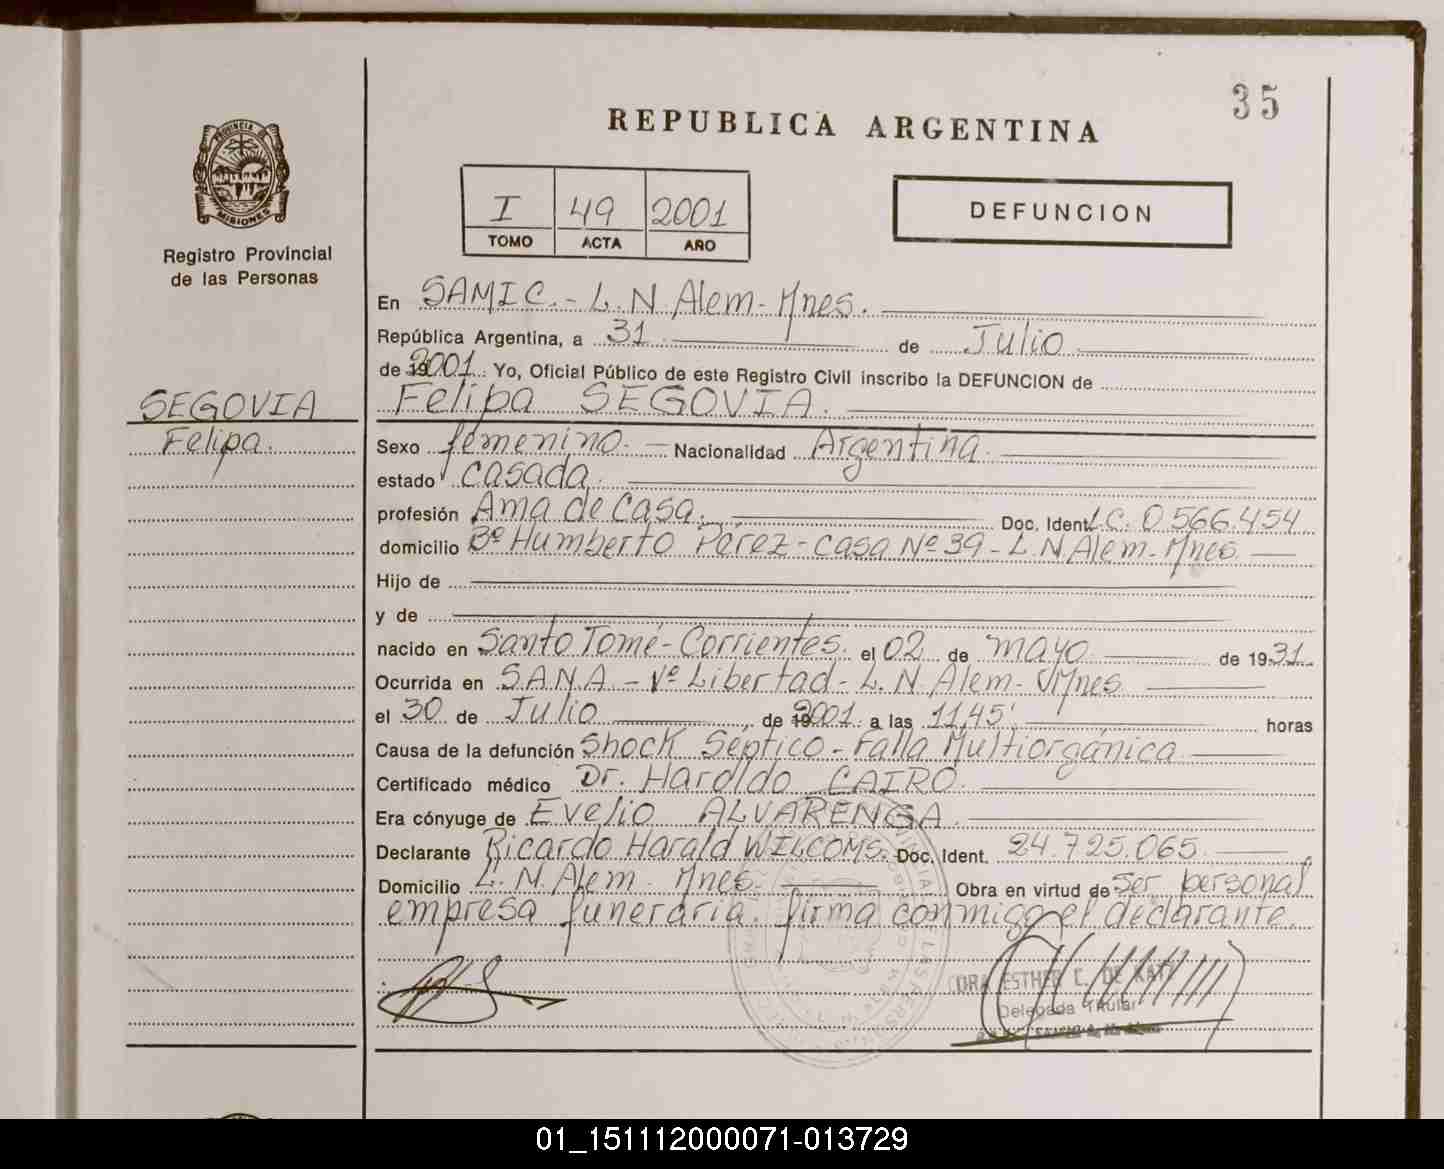 35
REPUBLICA ARGENTINA
PROVINCIA DE
MISIONES
Registro Provincial
de las Personas
I 49 2001
TOMO ACTA AÑO
DEFUNCION
En SAMIC.- L.N. Alem- Mnes.
República Argentina, a 31 de Julio
de 2001. Yo, Oficial Público de este Registro Civil inscribo la DEFUNCION de
SEGOVIA
Felipa SEGOVIA.
Felipa.
Sexo femenino. Nacionalidad Argentina.
estado casada.
profesión Ama de Casa. Doc. Ident. L.C. 0.566.454
domicilio Bº Humberto Pérez - casa Nº 39 - L.N. Alem - Mnes.
Hijo de
y de
nacido en Santo Tomé - Corrientes. el 02 de mayo de 1931.
Ocurrida en S.A.N.A. - Vº Libertad - L. N. Alem - Mnes.
el 30 de Julio de 2001. a las 11,45' horas
Causa de la defunción Shock Séptico - Falla Multiorgánica
Certificado médico Dr. Haroldo CAIRO.
Era cónyuge de Evelio ALVARENGA.
Declarante Ricardo Harald WILCOMS. Doc. Ident. 24.725.065
Domicilio L. N. Alem - Mnes. Obra en virtud de Ser personal
empresa funeraria. firma conmigo el declarante.
ESTHER C. DE
Delegada Titular
01_151112000071-013729